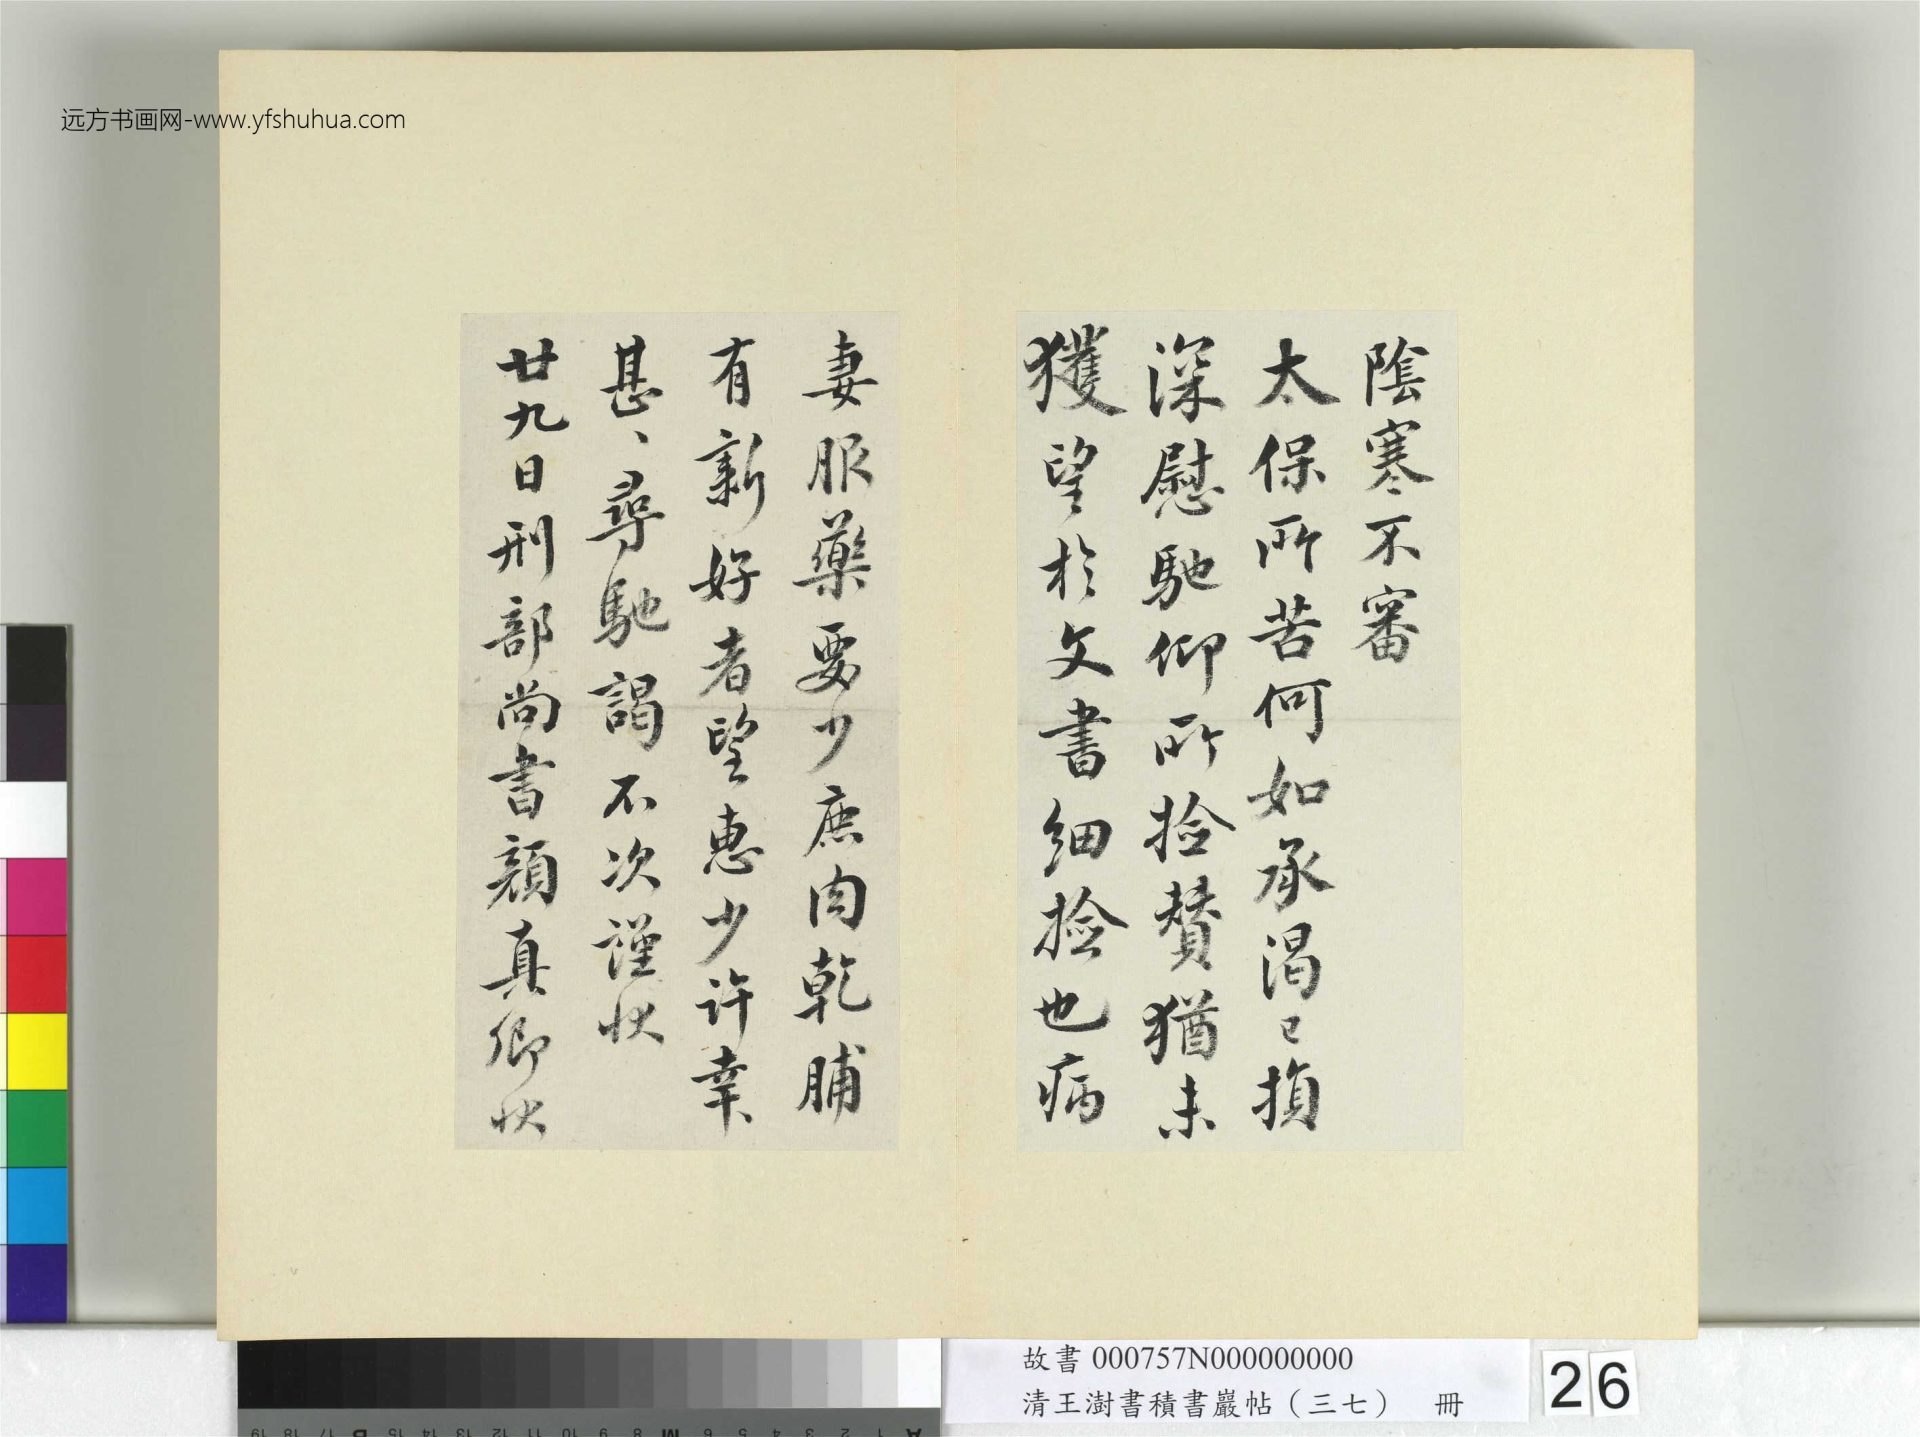 远方书画网-www.yfshuhua.com
陰寒不審
太保所苦何如承渴已損
深慰馳仰所捡贊猶未
獲望於文書細捡也病
妻服藥要少鹿肉乾脯
有新好者望惠少許幸
甚、尋馳謁不次謹狀
廿九日刑部尚書顏真卿狀
故書 000757N000000000
清王澍書積書巖帖（三七） 冊
26